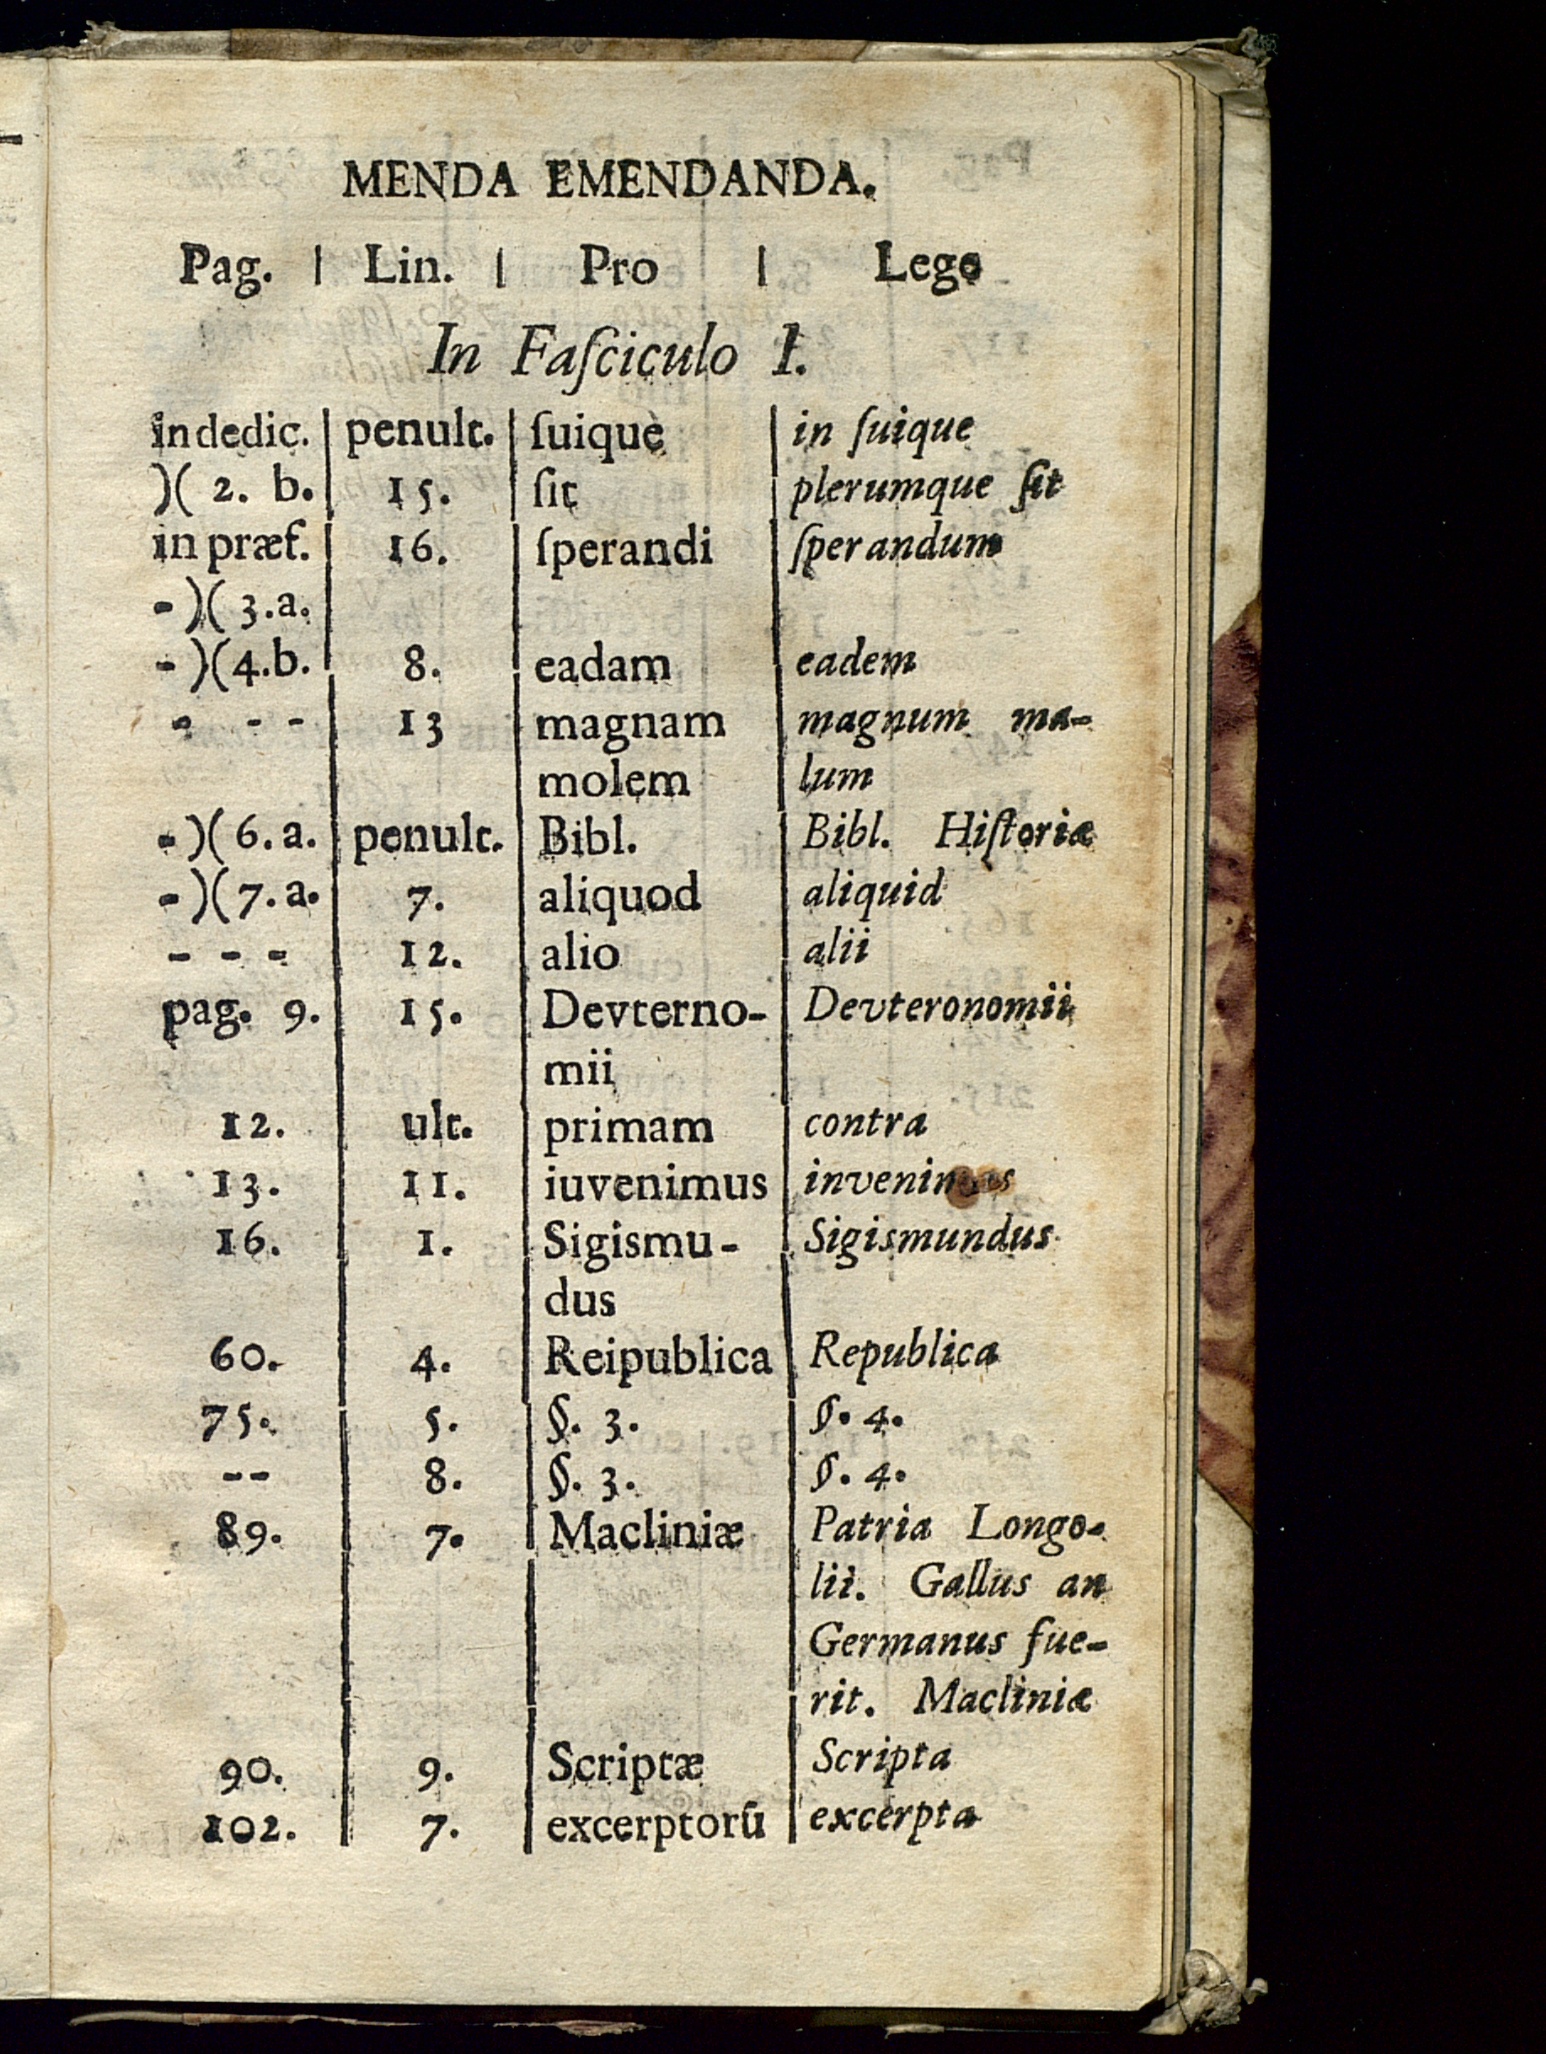 MENDA EMENDANDA.
Pag. | Lin. | Pro | Lege
In Faſciculo I.
in dedic. | penult. | ſuiquè | in ſuique
)( 2. b. | 15. | ſit | plerumque ſit
in præf. | 16. | ſperandi | ſperandum
- )( 3.a.
- )( 4.b. | 8. | eadam | eadem
- - - | 13 | magnam | magnum ma-
molem | lum
- )( 6. a. | penult. | Bibl. | Bibl. Hiſtoriæ
- )( 7. a. | 7. | aliquod | aliquid
- - - | 12. | alio | alii
pag. 9. | 15. | Devterno- | Devteronomii
mii
12. | ult. | primam | contra
13. | 11. | iuvenimus | invenimus
16. | 1. | Sigismu- | Sigismundus
dus
60. | 4. | Reipublica | Republica
75. | 5. | §. 3. | §. 4.
-- | 8. | §. 3. | §. 4.
89. | 7. | Macliniæ | Patria Longo-
lii. Gallus an
Germanus fue-
rit. Macliniæ
90. | 9. | Scriptæ | Scripta
102. | 7. | excerptorũ | excerpta